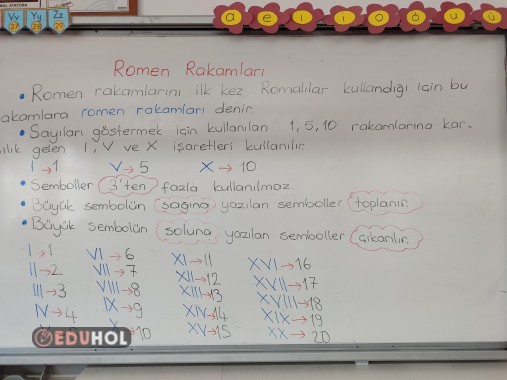 Vv Yy Zz
27 28 29
a e ı i o ö u ü
Romen Rakamları
• Romen rakamlarını ilk kez Romalılar kullandığı için bu
akamlara romen rakamları denir.
• Sayıları göstermek için kullanılan 1, 5, 10 rakamlarına kar-
ılık gelen I, V ve X işaretleri kullanılır.
I→1 V→5 X→10
• Semboller 3'ten fazla kullanılmaz.
• Büyük sembolün sağına yazılan semboller toplanır.
• Büyük sembolün soluna yazılan semboller çıkarılır.
I→1 VI→6 XI→11 XVI→16
II→2 VII→7 XII→12 XVII→17
III→3 VIII→8 XIII→13 XVIII→18
IV→4 IX→9 XIV→14 XIX→19
X→10 XV→15 XX→20
EDUHOL